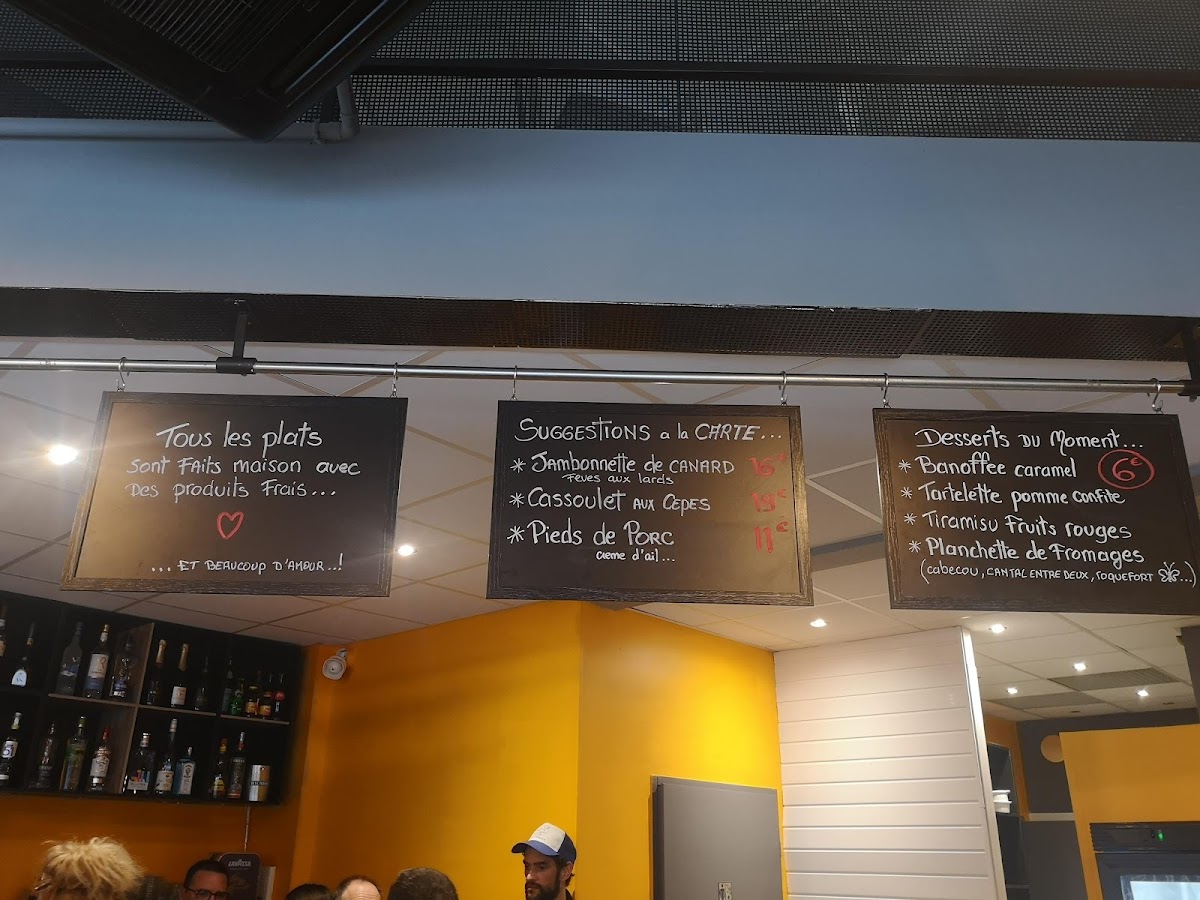 Tous les plats
sont faits maison avec
des produits frais...
... et beaucoup d'amour..!
Suggestions a la carte...
* Jambonnette de canard 16€
Feves aux lards
* Cassoulet aux cèpes 19€
* Pieds de Porc 11€
creme d'ail...
Desserts du Moment... 6€
* Banoffee caramel
* Tartelette pomme confite
* Tiramisu fruits rouges
* Planchette de fromages
(cabecou, cantal entre deux, roquefort ...)
LAVAZZA